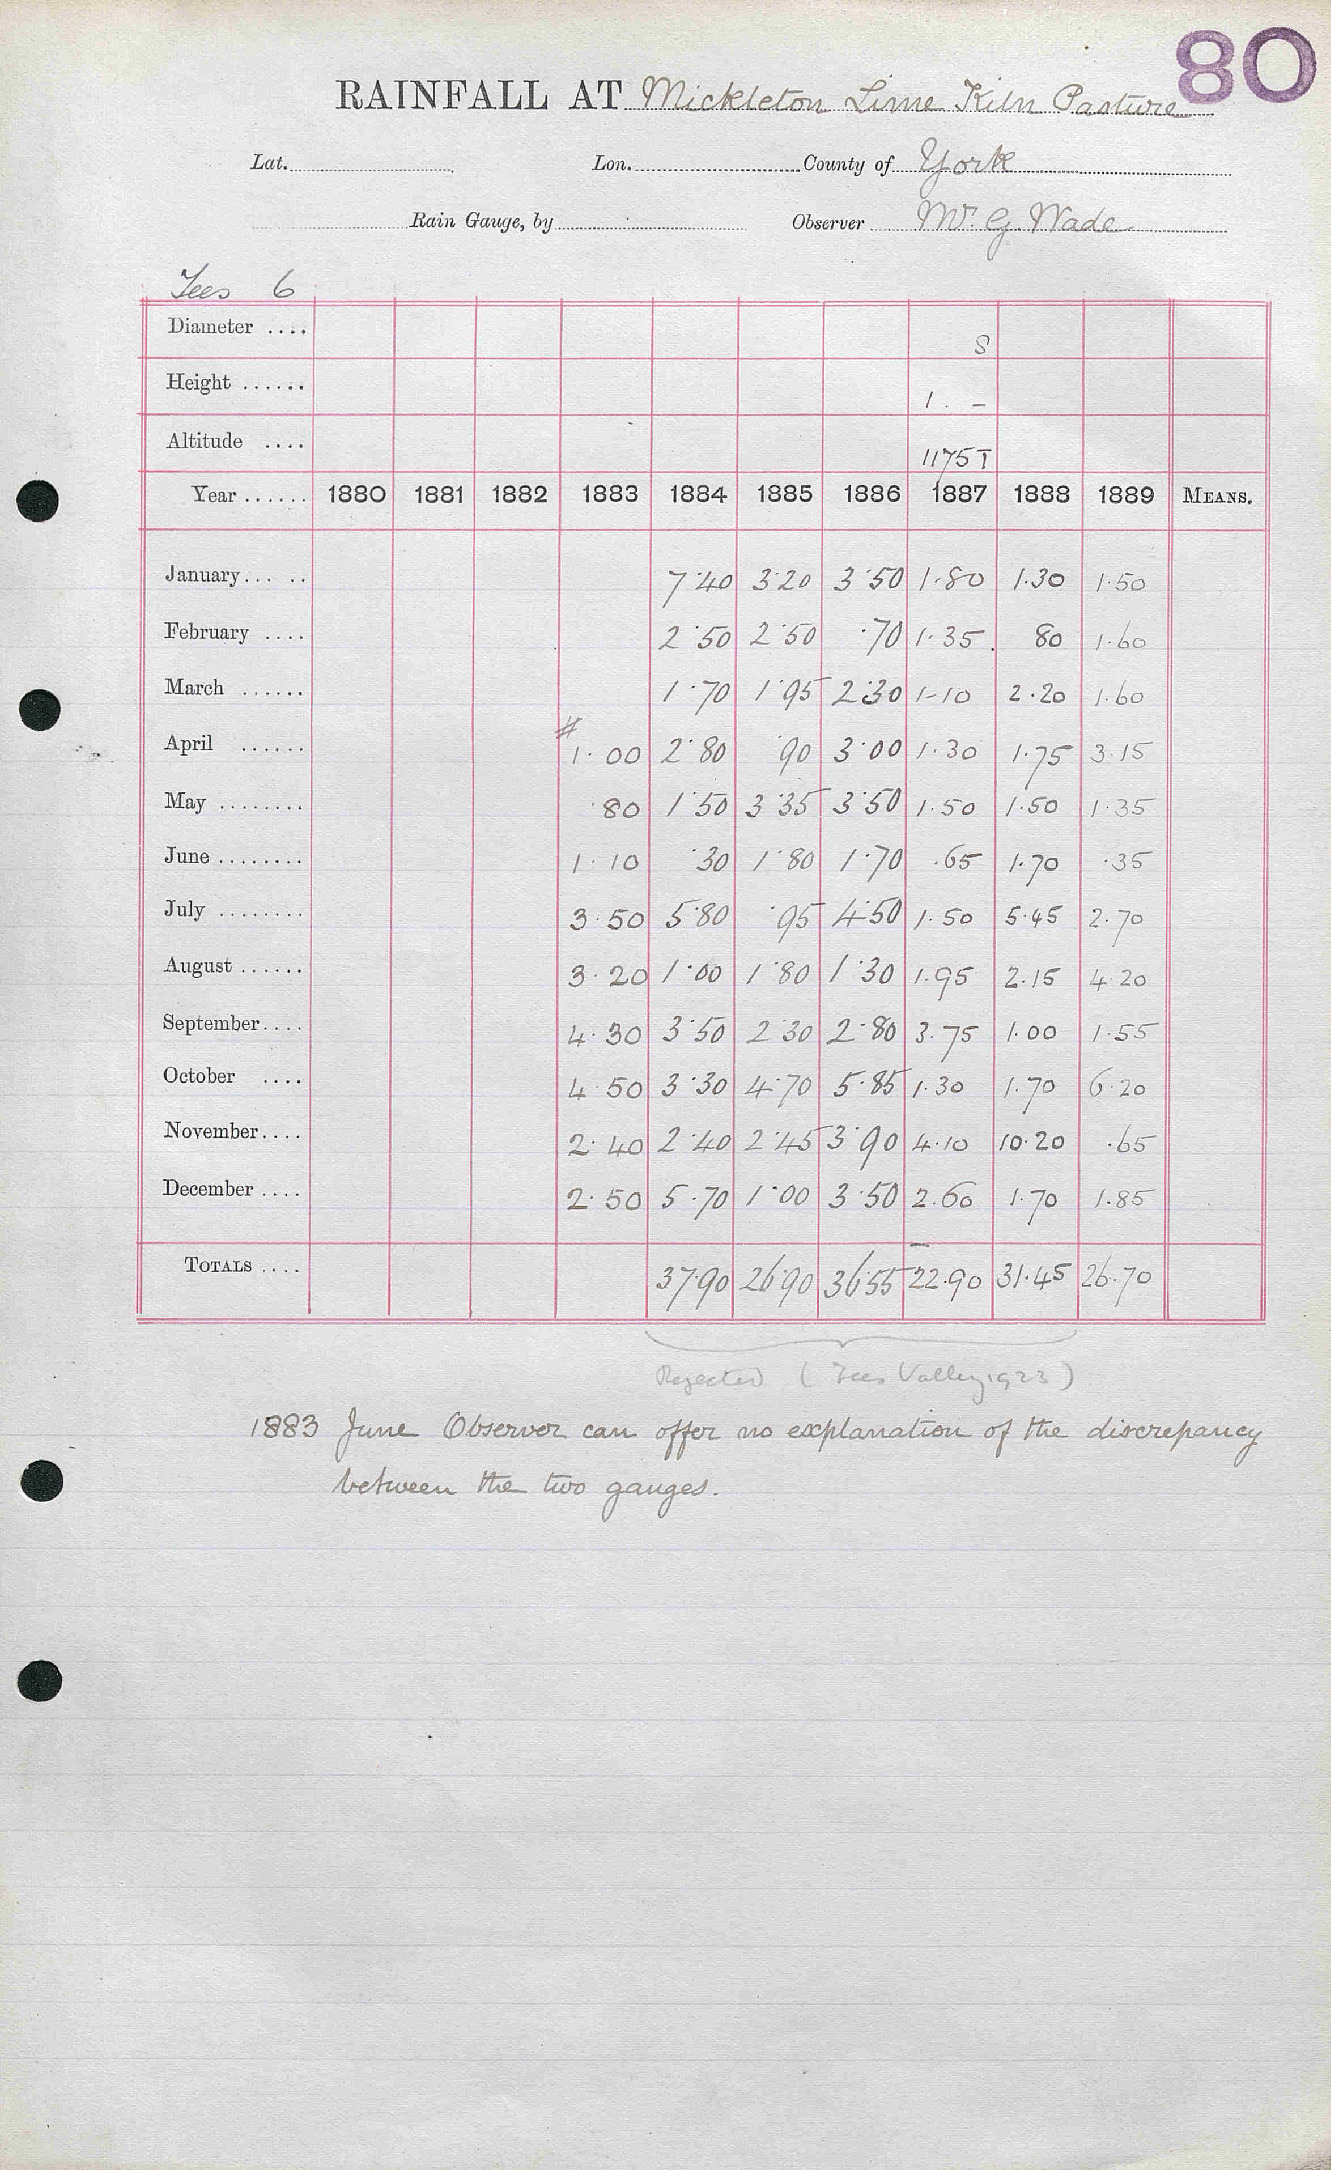 80
RAINFALL AT Mickleton Lime Kiln Pasture
Lat. Lon. County of York
Rain Gauge, by Observer Mr. G Wade
Tees 6
Diameter .... S
Height ...... 1. –
Altitude .... 1175 T
Year ...... 1880 1881 1882 1883 1884 1885 1886 1887 1888 1889 MEANS.
January... .. 7.40 3.20 3.50 1.80 1.30 1.50
February .... 2.50 2.50 .70 1.35 80 1.60
March ...... 1.70 1.95 2.30 1-10 2.20 1.60
April ...... # 1.00 2.80 90 3.00 1.30 1.75 3.15
May ........ .80 1.50 3.35 3.50 1.50 1.50 1.35
June ........ 1.10 .30 1.80 1.70 .65 1.70 .35
July ........ 3.50 5.80 .95 4.50 1.50 5.45 2.70
August ...... 3.20 1.00 1.80 1.30 1.95 2.15 4.20
September.... 4.30 3.50 2.30 2.80 3.75 1.00 1.55
October .... 4.50 3.30 4.70 5.85 1.30 1.70 6.20
November.... 2.40 2.40 2.45 3.90 4.10 10.20 .65
December .... 2.50 5.70 1.00 3.50 2.60 1.70 1.85
TOTALS .... 37.90 26.90 36.55 22.90 31.45 26.70
Rejected (Tees Valley 1923)
1883 June Observer can offer no explanation of the discrepancy
between the two gauges.